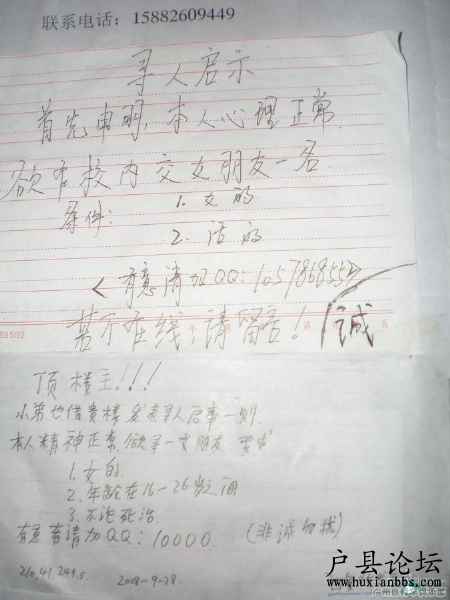 联系电话：15882609449
寻人启示
首先申明，本人心理正常
欲在校内交女朋友一名
条件：1.女的
2.活的
<有意请加QQ：1057868552>
若不在线，请留言！
诚
顶楼主！！！
小弟也借贵楼发表寻人启事一则
本人精神正常，欲寻一女朋友 要求
1.女的
2.年龄在16－26岁之间
3.不论死活
有意者请加QQ：10000 （非诚勿扰）
2008-9-28
户县论坛
www.huxianbbs.com